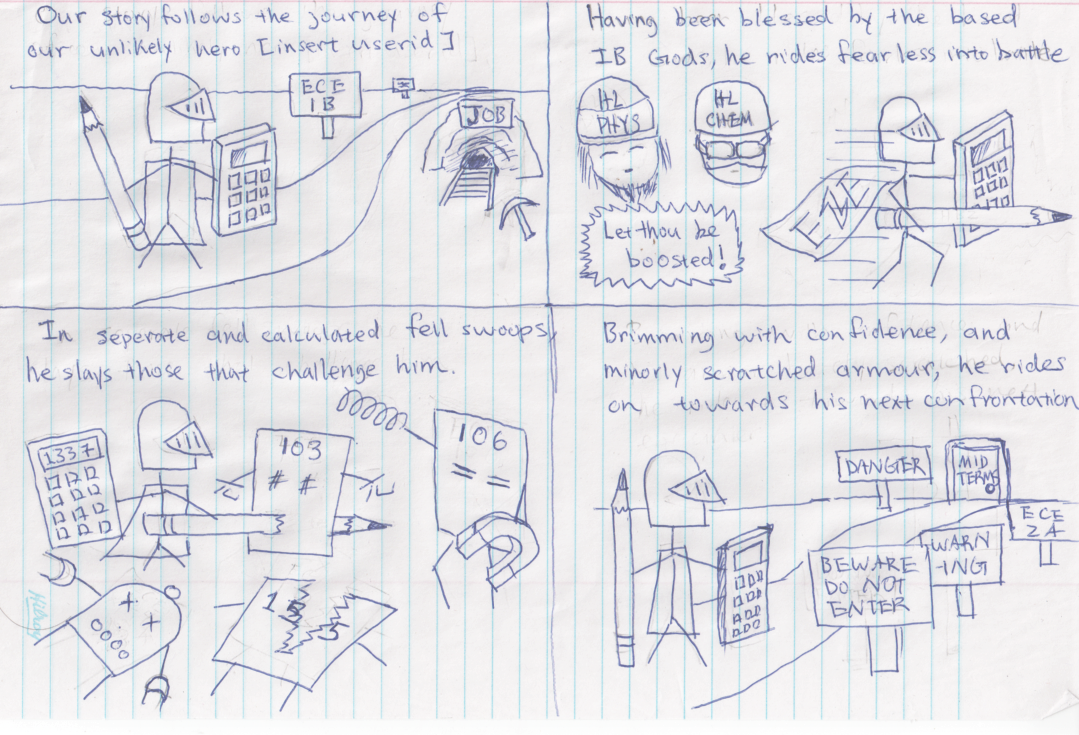 Our story follows the journey of
our unlikely hero [insert userid]
ECE
1B
JOB
Having been blessed by the based
IB Gods, he rides fearless into battle
HL
PHYS
HL
CHEM
Let thou be
boosted!
In seperate and calculated fell swoops,
he slays those that challenge him.
1337
103
# #
106
Brimming with confidence, and
minorly scratched armour, he rides
on towards his next confrontation
DANGER
MID
TERMS
ECE
2A
WARN
-ING
BEWARE
DO NOT
ENTER